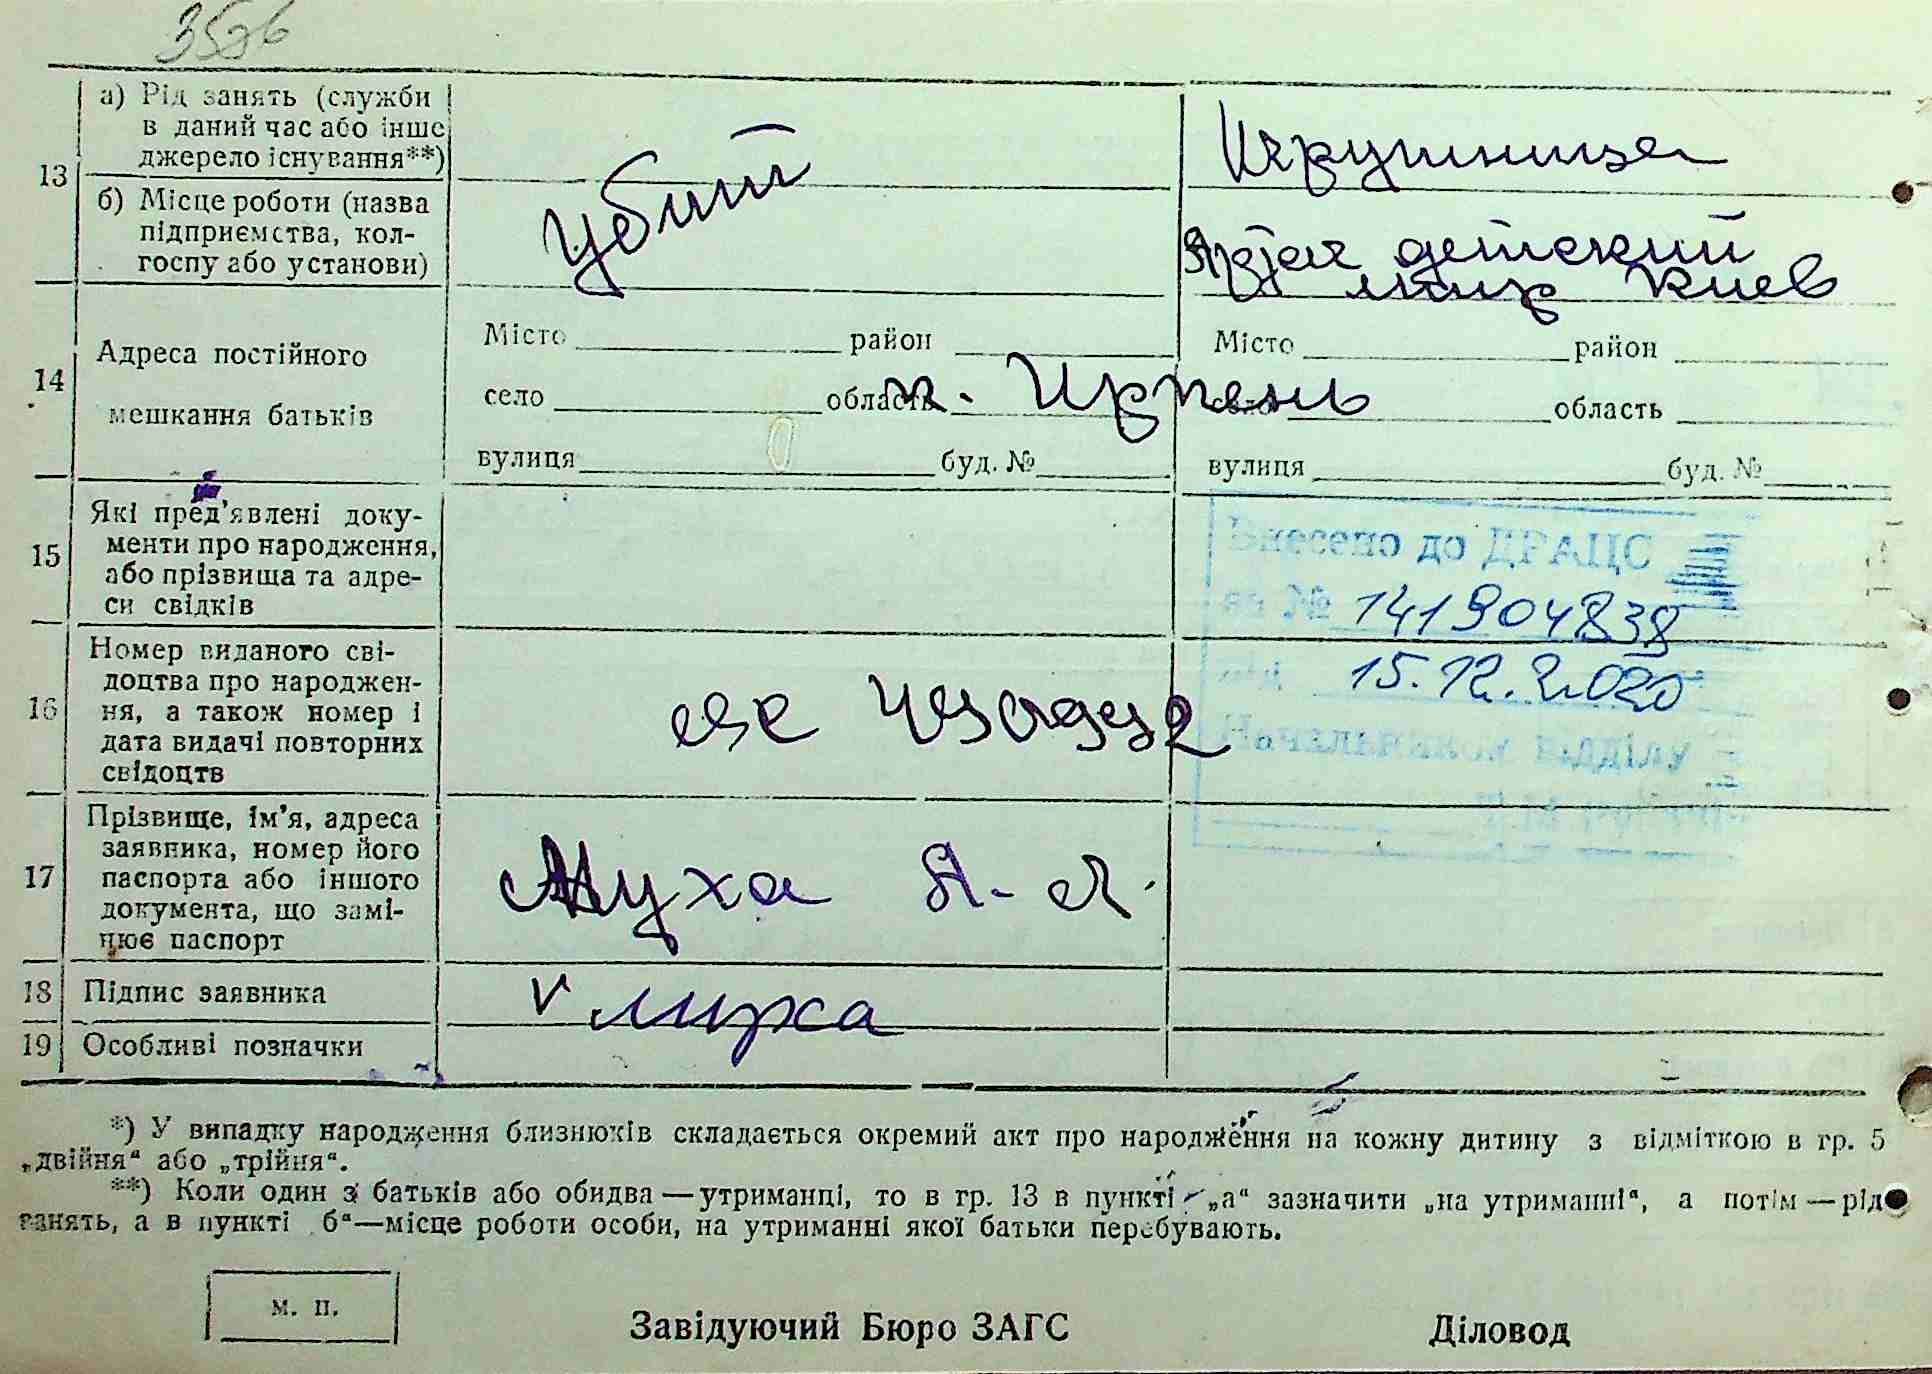 а) Рід занять (служби
в даний час або інше
джерело існування**)
13
б) Місце роботи (назва
підприємства, кол-
госпу або установи)
убит
Игрушница
Артель детский
мир Киев
14
Адреса постійного
мешкання батьків
Місто район
село область
вулиця буд. №
п. Ирпень
Місто район
область
вулиця буд. №
15
Які пред'явлені доку-
менти про народження,
або прізвища та адре-
си свідків
Внесено до ДРАЦС
за № 141904838
від 15.12.2020
Начальником відділу
16
Номер виданого сві-
доцтва про народжен-
ня, а також номер і
дата видачі повторних
свідоцтв
17
Прізвище, ім'я, адреса
заявника, номер його
паспорта або іншого
документа, що замі-
нює паспорт
Муха А. Л.
18 Підпис заявника
Муха
19 Особливі позначки
*) У випадку народження близнюків складається окремий акт про народження на кожну дитину з відміткою в гр. 5
„двійня“ або „трійня“.
**) Коли один з батьків або обидва — утриманці, то в гр. 13 в пункті „а“ зазначити „на утриманні“, а потім — рід
занять, а в пункті б“ — місце роботи особи, на утриманні якої батьки перебувають.
м. п.
Завідуючий Бюро ЗАГС
Діловод